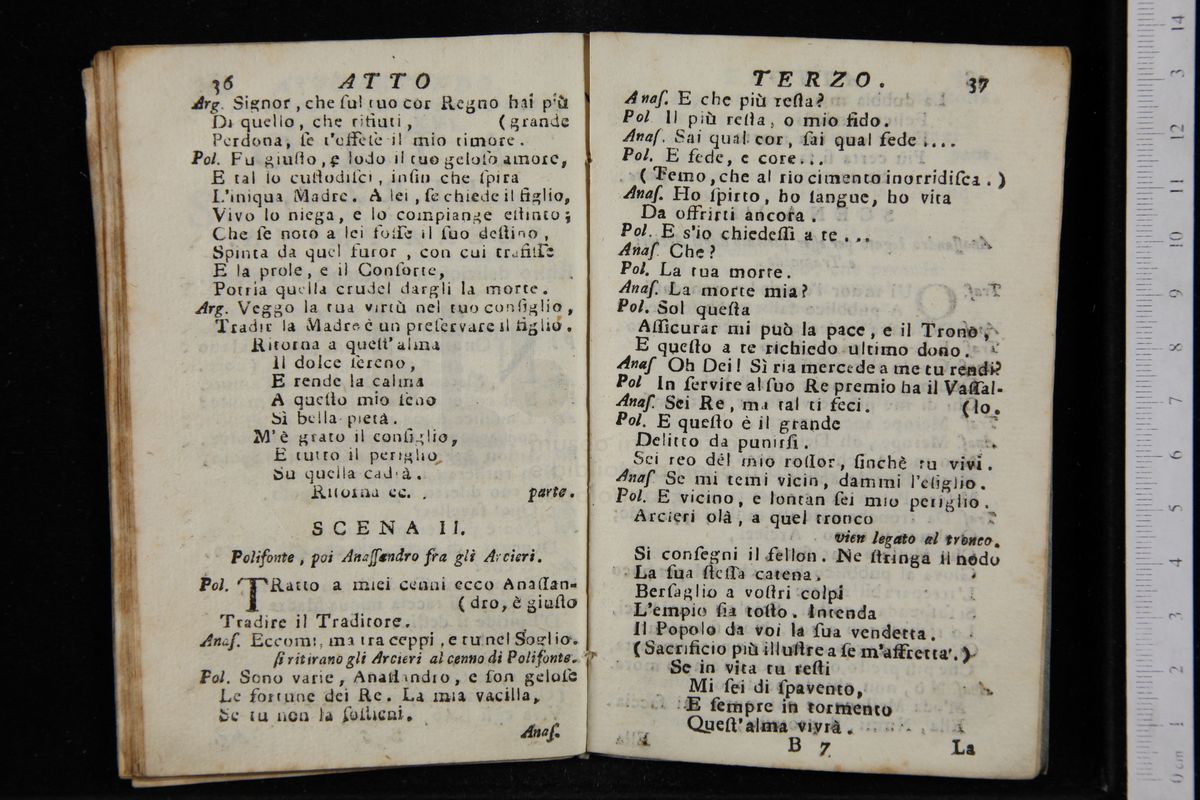 36 ATTO
Arg. Signor, che ſul tuo cor Regno hai più
Di quello, che rifiuti, (grande
Perdona, ſe t'offeſe il mio timore.
Pol. Fu giuſto, e lodo il tuo geloſo amore,
E tal lo cuſtodiſci, infin che ſpira
L'iniqua Madre. A lei, ſe chiede il figlio,
Vivo lo niega, e lo compiange eſtinto;
Che ſe noto a lei foſſe il ſuo deſtino,
Spinta da quel furor, con cui trafiſſe
E la prole, e il Conſorte,
Potria quella crudel dargli la morte.
Arg. Veggo la tua virtù nel tuo conſiglio,
Tradir la Madre è un preſervare il figlio.
Ritorna a queſt'alma
Il dolce ſereno,
E rende la calma
A queſto mio ſeno
Sì bella pietà.
M'è grato il conſiglio,
E tutto il periglio
Su quella cadrà.
Ritorna ec. parte.
SCENA II.
Polifonte, poi Anaſſandro fra gli Arcieri.
Pol. TRatto a miei cenni ecco Anaſſan-
(dro, è giuſto
Tradire il Traditore.
Anaſ. Eccomi, ma tra ceppi, e tu nel Soglio.
ſi ritirano gli Arcieri al cenno di Polifonte.
Pol. Sono varie, Anaſſandro, e ſon geloſe
Le fortune dei Re. La mia vacilla,
Se tu non la ſoſtieni.
Anaſ.
TERZO. 37
Anaſ. E che più reſta?
Pol Il più reſta, o mio fido.
Anaſ. Sai qual cor, ſai qual fede....
Pol. E fede, e core...
(Temo, che al rio cimento inorridiſca.)
Anaſ. Ho ſpirto, ho ſangue, ho vita
Da offrirti ancora.
Pol. E s'io chiedeſſi a te...
Anaſ. Che?
Pol. La tua morte.
Anaſ. La morte mia?
Pol. Sol queſta
Aſſicurar mi può la pace, e il Trono,
E queſto a te richiedo ultimo dono.
Anaſ Oh Dei! Sì ria mercede a me tu rendi?
Pol In ſervire al ſuo Re premio ha il Vaſſal-
Anaſ. Sei Re, ma tal ti feci. (lo.
Pol. E queſto è il grande
Delitto da punirſi.
Sei reo del mio roſſor, finchè tu vivi.
Anaſ Se mi temi vicin, dammi l'eſiglio.
Pol. E vicino, e lontan ſei mio periglio.
Arcieri olà, a quel tronco
vien legato al tronco.
Si conſegni il fellon. Ne ſtringa il nodo
La ſua ſteſſa catena.
Berſaglio a voſtri colpi
L'empio ſia toſto. Intenda
Il Popolo da voi la ſua vendetta.
(Sacrificio più illuſtre a ſe m'affretta.)
Se in vita tu reſti
Mi ſei di ſpavento,
E ſempre in tormento
Queſt'alma vivrà.
B 7 La